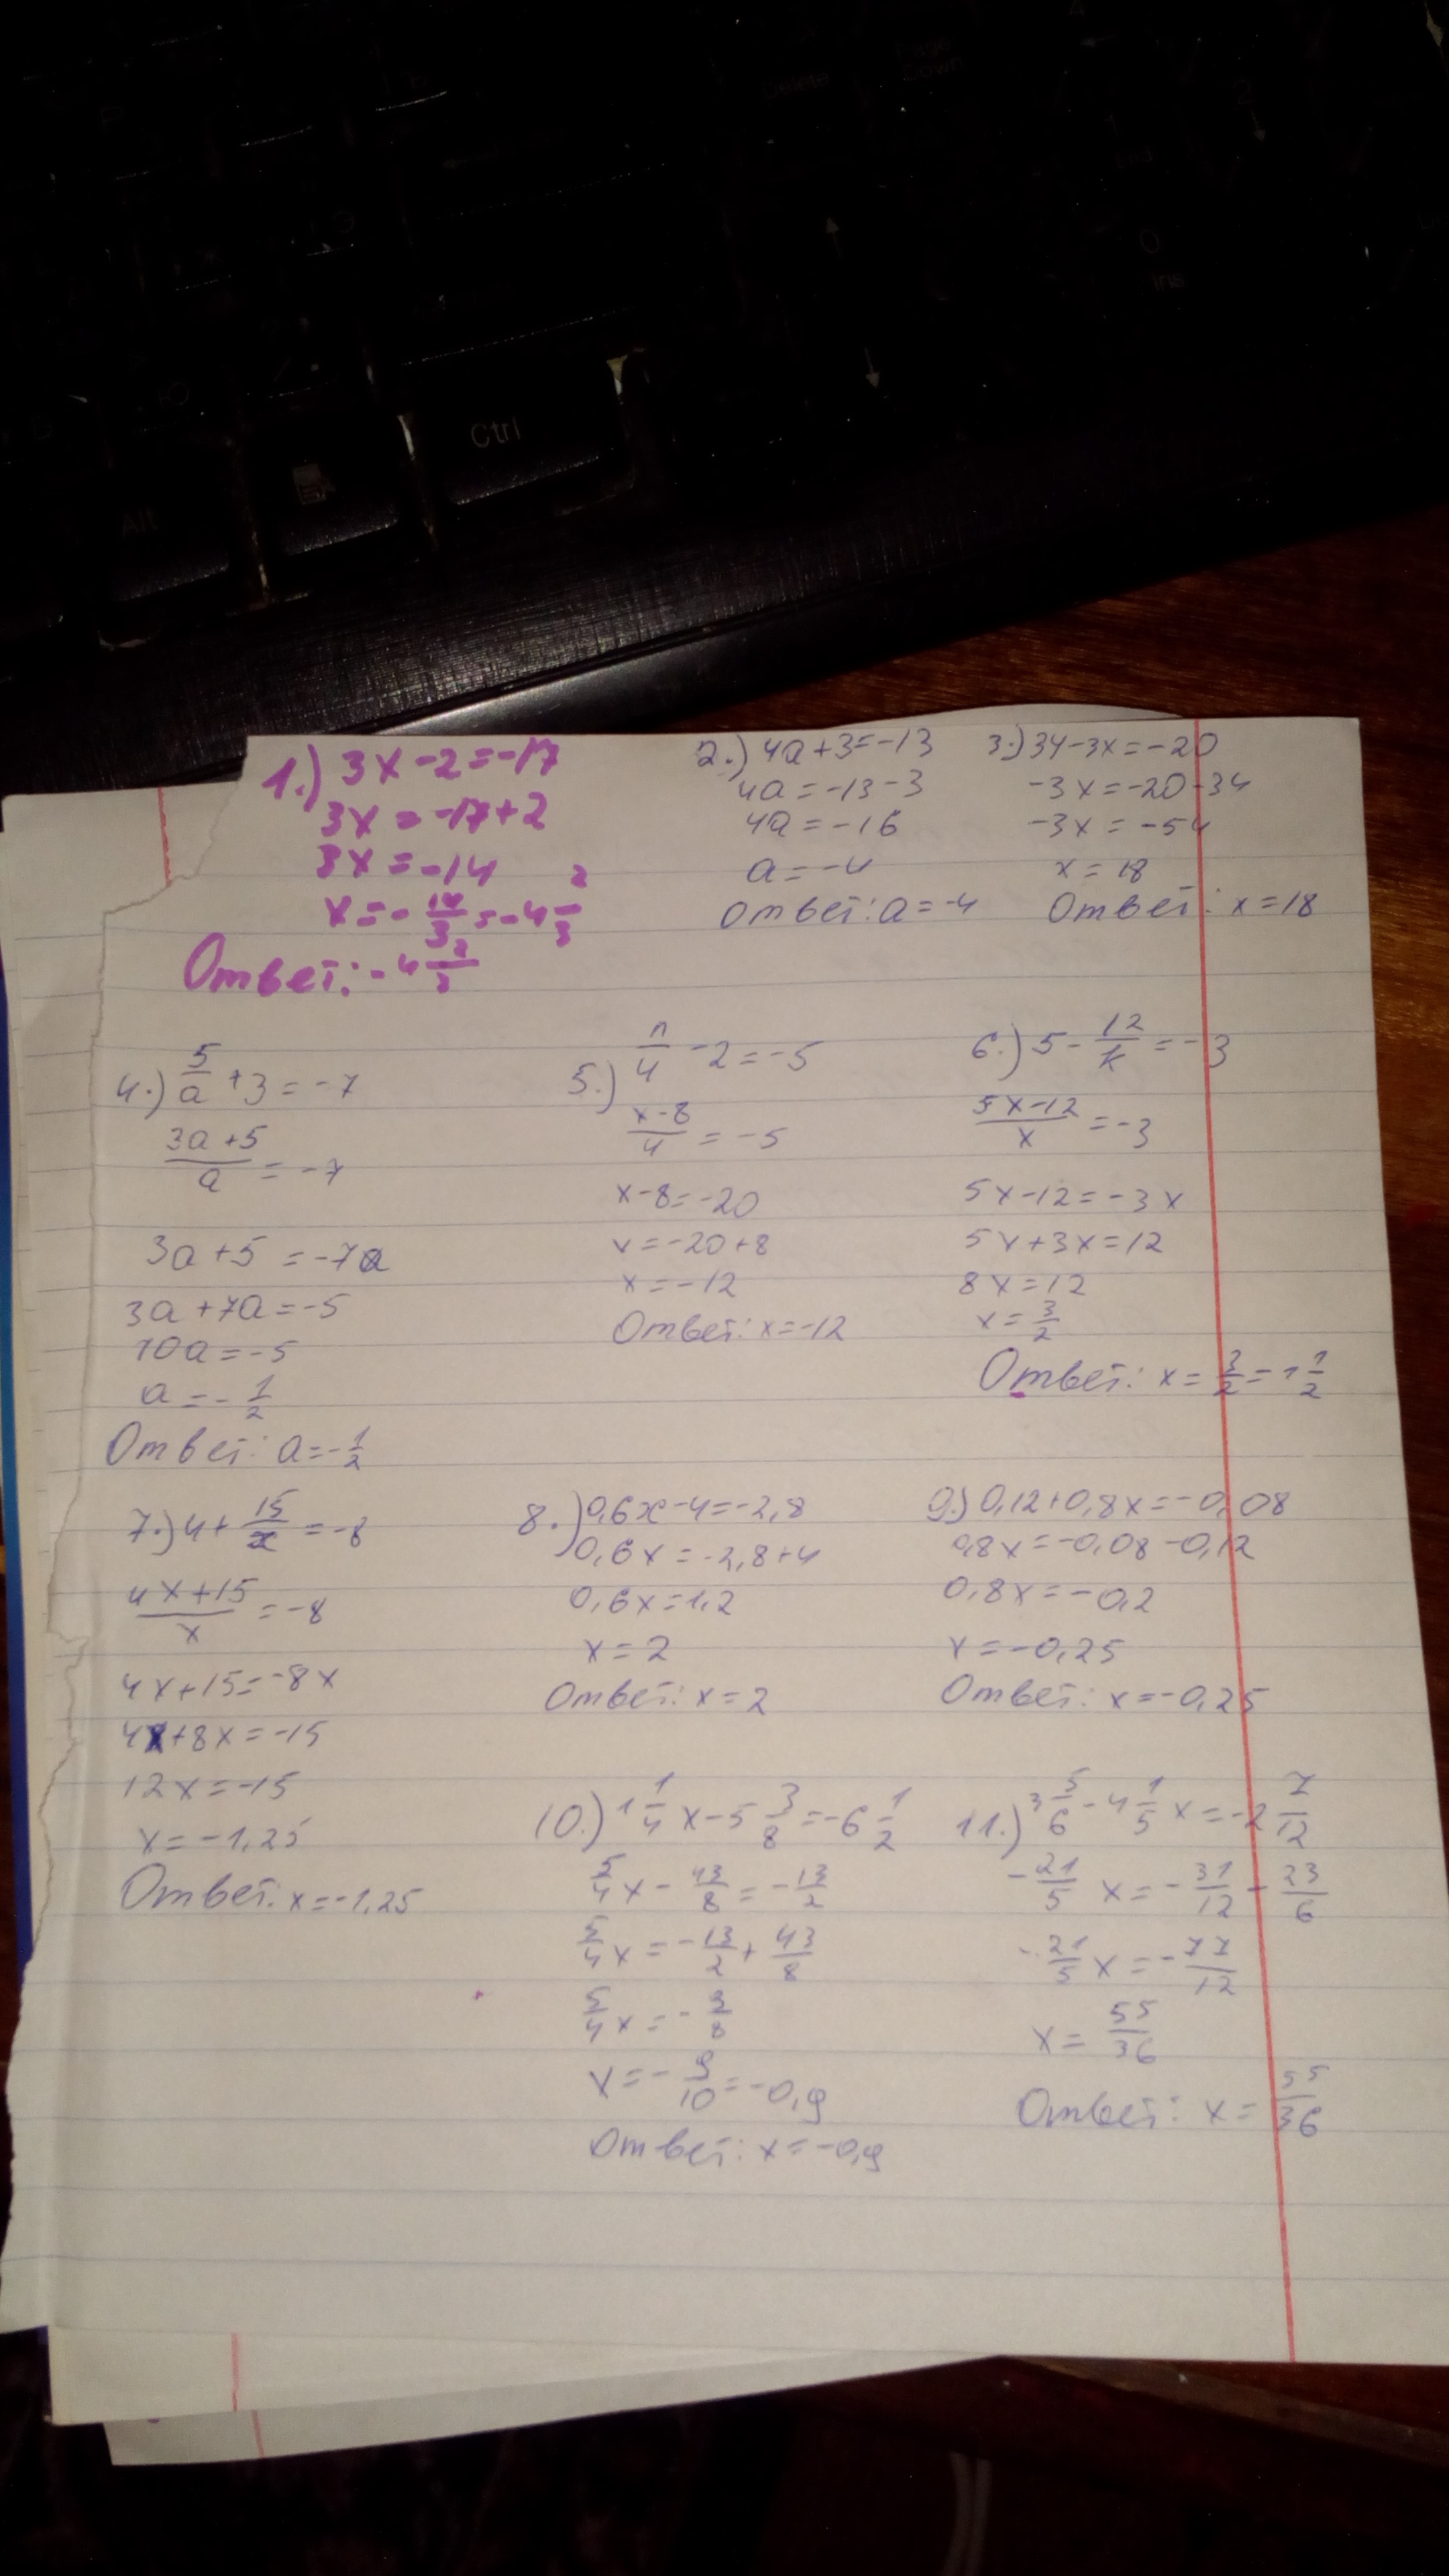 Delete
Down
Ins
Ctrl
Alt
1.) 3x-2=-17
3x=-17+2
3x=-14
x=-14/3=-4 2/3
Ответ: -4 2/3
2.) 4a+3=-13
4a=-13-3
4a=-16
a=-4
Ответ: a=-4
3.) 34-3x=-20
-3x=-20-34
-3x=-54
x=18
Ответ: x=18
4.) 5/a+3=-7
(3a+5)/a=-7
3a+5=-7a
3a+7a=-5
10a=-5
a=-1/2
Ответ: a=-1/2
5.) n/4-2=-5
(x-8)/4=-5
x-8=-20
x=-20+8
x=-12
Ответ: x=-12
6.) 5-12/k=-3
(5x-12)/x=-3
5x-12=-3x
5x+3x=12
8x=12
x=3/2
Ответ: x=3/2=1 1/2
7.) 4+15/x=-8
(4x+15)/x=-8
4x+15=-8x
4x+8x=-15
12x=-15
x=-1,25
Ответ. x=-1,25
8.) 0,6x-4=-2,8
0,6x=-2,8+4
0,6x=1,2
x=2
Ответ: x=2
9.) 0,12+0,8x=-0,08
0,8x=-0,08-0,12
0,8x=-0,2
x=-0,25
Ответ: x=-0,25
10.) 1 1/4x-5 3/8=-6 1/2
5/4x-43/8=-13/2
5/4x=-13/2+43/8
5/4x=-9/8
x=-9/10=-0,9
Ответ: x=-0,9
11.) 3 5/6-4 1/5x=-2 7/12
-21/5x=-31/12-23/6
-21/5x=-77/12
x=55/36
Ответ: x=55/36